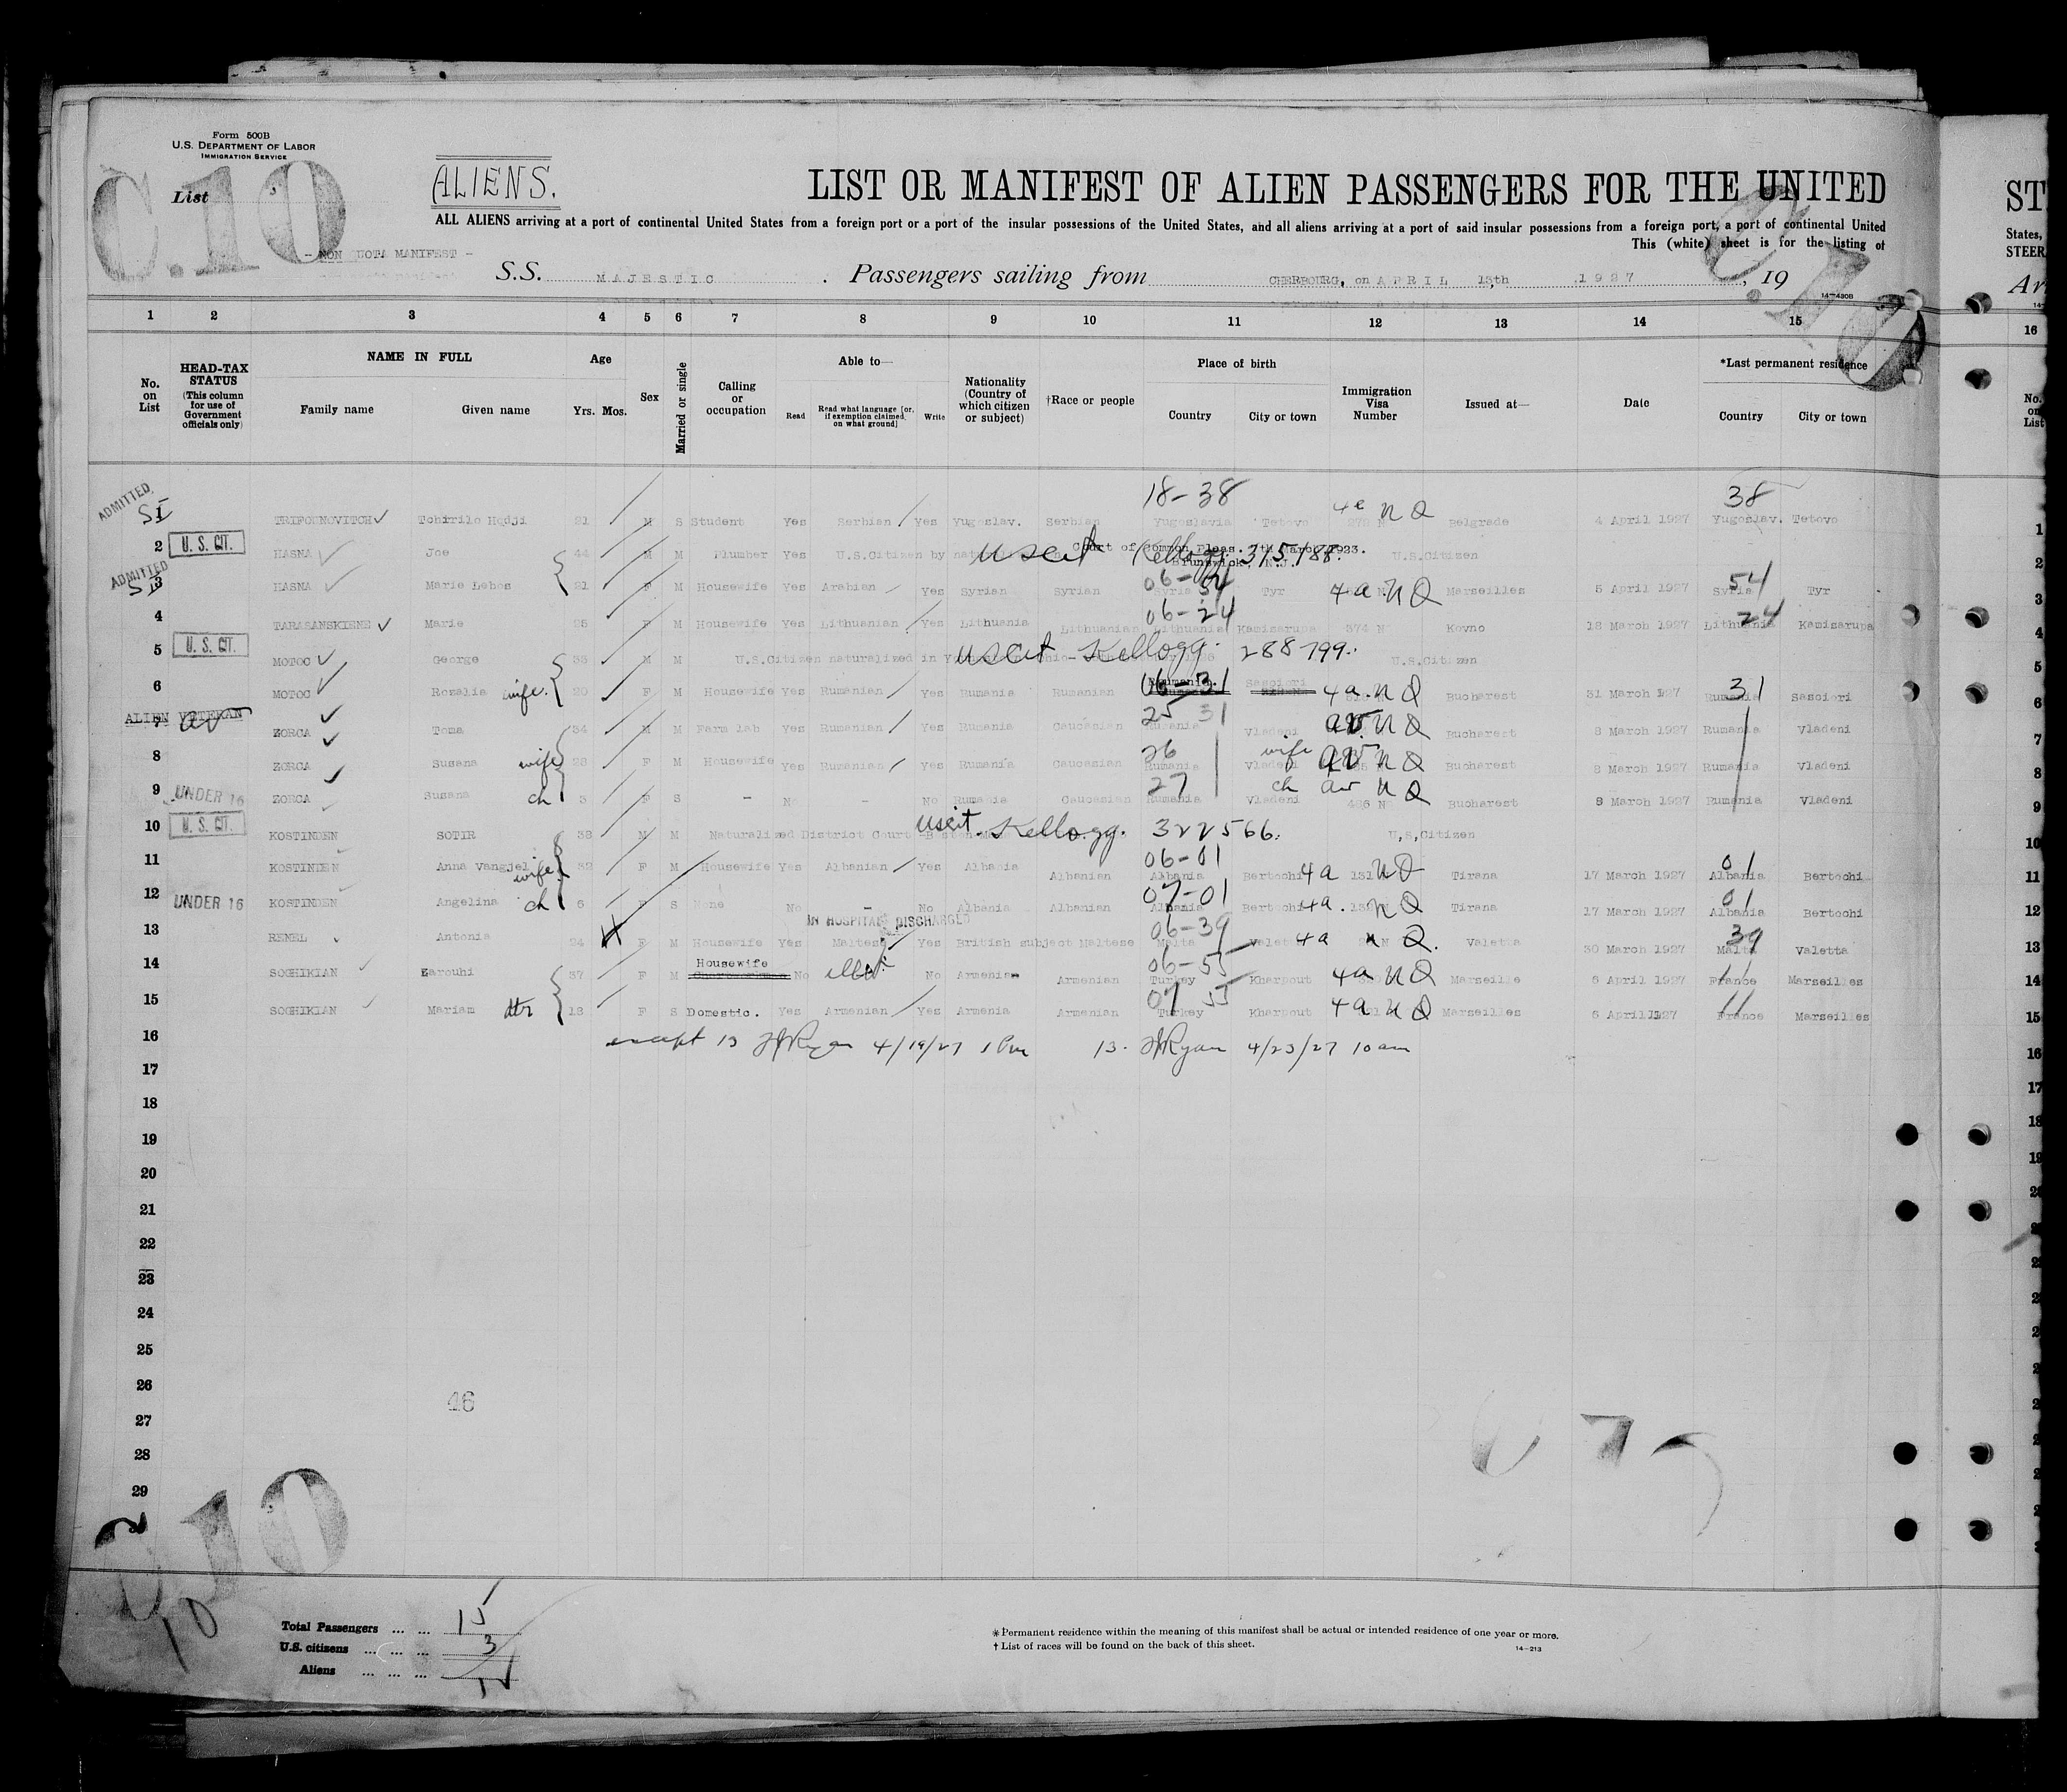 Form 500B
U.S. DEPARTMENT OF LABOR
IMMIGRATION SERVICE
C.10
List
ALIENS.
LIST OR MANIFEST OF ALIEN PASSENGERS FOR THE UNITED
ST
ALL ALIENS arriving at a port of continental United States from a foreign port or a port of the insular possessions of the United States, and all aliens arriving at a port of said insular possessions from a foreign port, a port of continental United
States,
This (white) sheet is for the listing of
STEER
- NON QUOTA MANIFEST -
S.S. MAJESTIC . Passengers sailing from CHERBOURG, on APRIL 13th 1927 , 19
Ar
C.10
14-430B
1 2 3 4 5 6 7 8 9 10 11 12 13 14 15 16
No. on List
HEAD-TAX STATUS (This column for use of Government officials only)
NAME IN FULL
Family name Given name
Age
Yrs. Mos.
Sex
Married or single
Calling or occupation
Able to—
Read
Read what language [or, if exemption claimed, on what ground]
Write
Nationality (Country of which citizen or subject)
†Race or people
Place of birth
Country City or town
Immigration Visa Number
Issued at—
Date
*Last permanent residence
Country City or town
No. on List
18-38 38
ADMITTED SI TRIFOUNOVITCH 21 M S Student Yes Serbian Yes Yugoslav. Serbian Yugoslavia Tetovo 4e NQ Belgrade 4 April 1927 Yugoslav. Tetovo 1
2 U. S. CIT. HASNA Joe 44 M M Plumber Yes U.S.Citizen by Court of Common Pleas. 1923. U.S.Citizen 2
uscit Kellogg. 315188. Brunswick, N.J.
ADMITTED SI 3 HASNA Marie 21 F M Housewife Yes Arabian Yes Syrian Syrian 06-54 Syria Tyr 4a NQ Marseilles 5 April 1927 54 Syria Tyr 3
4 TARASANSKIENE Marie 25 F M Housewife Yes Lithuanian Yes Lithuania Lithuanian 06-24 Lithuania Kamisarupa 574 N Kovno 18 March 1927 24 Lithuania Kamisarupa 4
5 U. S. CIT. MOTOC George M M U.S.Citizen naturalized in uscit Kellogg. 288799. U.S.Citizen 5
6 MOTOC Rozalie wife. 20 F M Housewife Yes Rumanian Yes Rumania Rumanian 06-31 Rumania. Sasciori 4a. NQ Bucharest 31 March 1927 31 Rumania Sasciori 6
ALIEN VETERAN
7 av ZORCA Toma 34 M M Farm lab Yes Rumanian Yes Rumania Caucasian 25 31 Rumania Vladeni av. NQ Bucharest 8 March 1927 Rumania Vladeni 7
8 ZORCA Susana wife F M Housewife Yes Rumanian Yes Rumania Caucasian 26 Rumania Vladeni wife av NQ Bucharest 8 March 1927 Rumania Vladeni 8
9 UNDER 16 ZORCA Susana ch 3 F S - No - No Rumania Caucasian 27 Rumania Vladeni ch av NQ Bucharest 8 March 1927 Rumania Vladeni 9
10 U. S. CIT. KOSTINDEN SOTIR 38 M M Naturalized District Court uscit. Kellogg. 322566. U.S.Citizen 10
11 KOSTINDEN Anna Vangjel wife. 32 F M Housewife Yes Albanian Yes Albania Albanian 06-01 Albania Bertochi 4a NQ Tirana 17 March 1927 01 Albania Bertochi 11
12 UNDER 16 KOSTINDEN Angelina ch 6 F S None No - No Albania Albanian 07-01 Albania Bertochi 4a. NQ Tirana 17 March 1927 01 Albania Bertochi 12
IN HOSPITAL DISCHARGED
13 RENEL Antonia 24 X F M Housewife Yes Maltese Yes British subject Maltese 06-39 Malta Valetta 4a NQ. Valetta 30 March 1927 39 Malta Valetta 13
14 SOGHIKIAN Zarouhi 37 F M Housewife No illit. No Armenian Armenian 06-55 Turkey Kharpout 4a NQ Marseille 6 April 1927 11 France Marseilles 14
15 SOGHIKIAN Mariam dtr 13 F S Domestic. Yes Armenian Yes Armenia Armenian 07 55 Turkey Kharpout 4a NQ Marseilles 6 April 1927 11 France Marseilles 15
16 except 13 Ryan 4/19/27 1 Pm 13. Ryan 4/23/27 10 am 16
17 17
18 18
19 19
20 20
21
22
23
24
25
26
46
27
28
29
2
C.10
10
Total Passengers ... ... 15
U.S. citizens ... ... ... 3
Aliens ... ... ... 12
*Permanent residence within the meaning of this manifest shall be actual or intended residence of one year or more.
† List of races will be found on the back of this sheet.
14-213